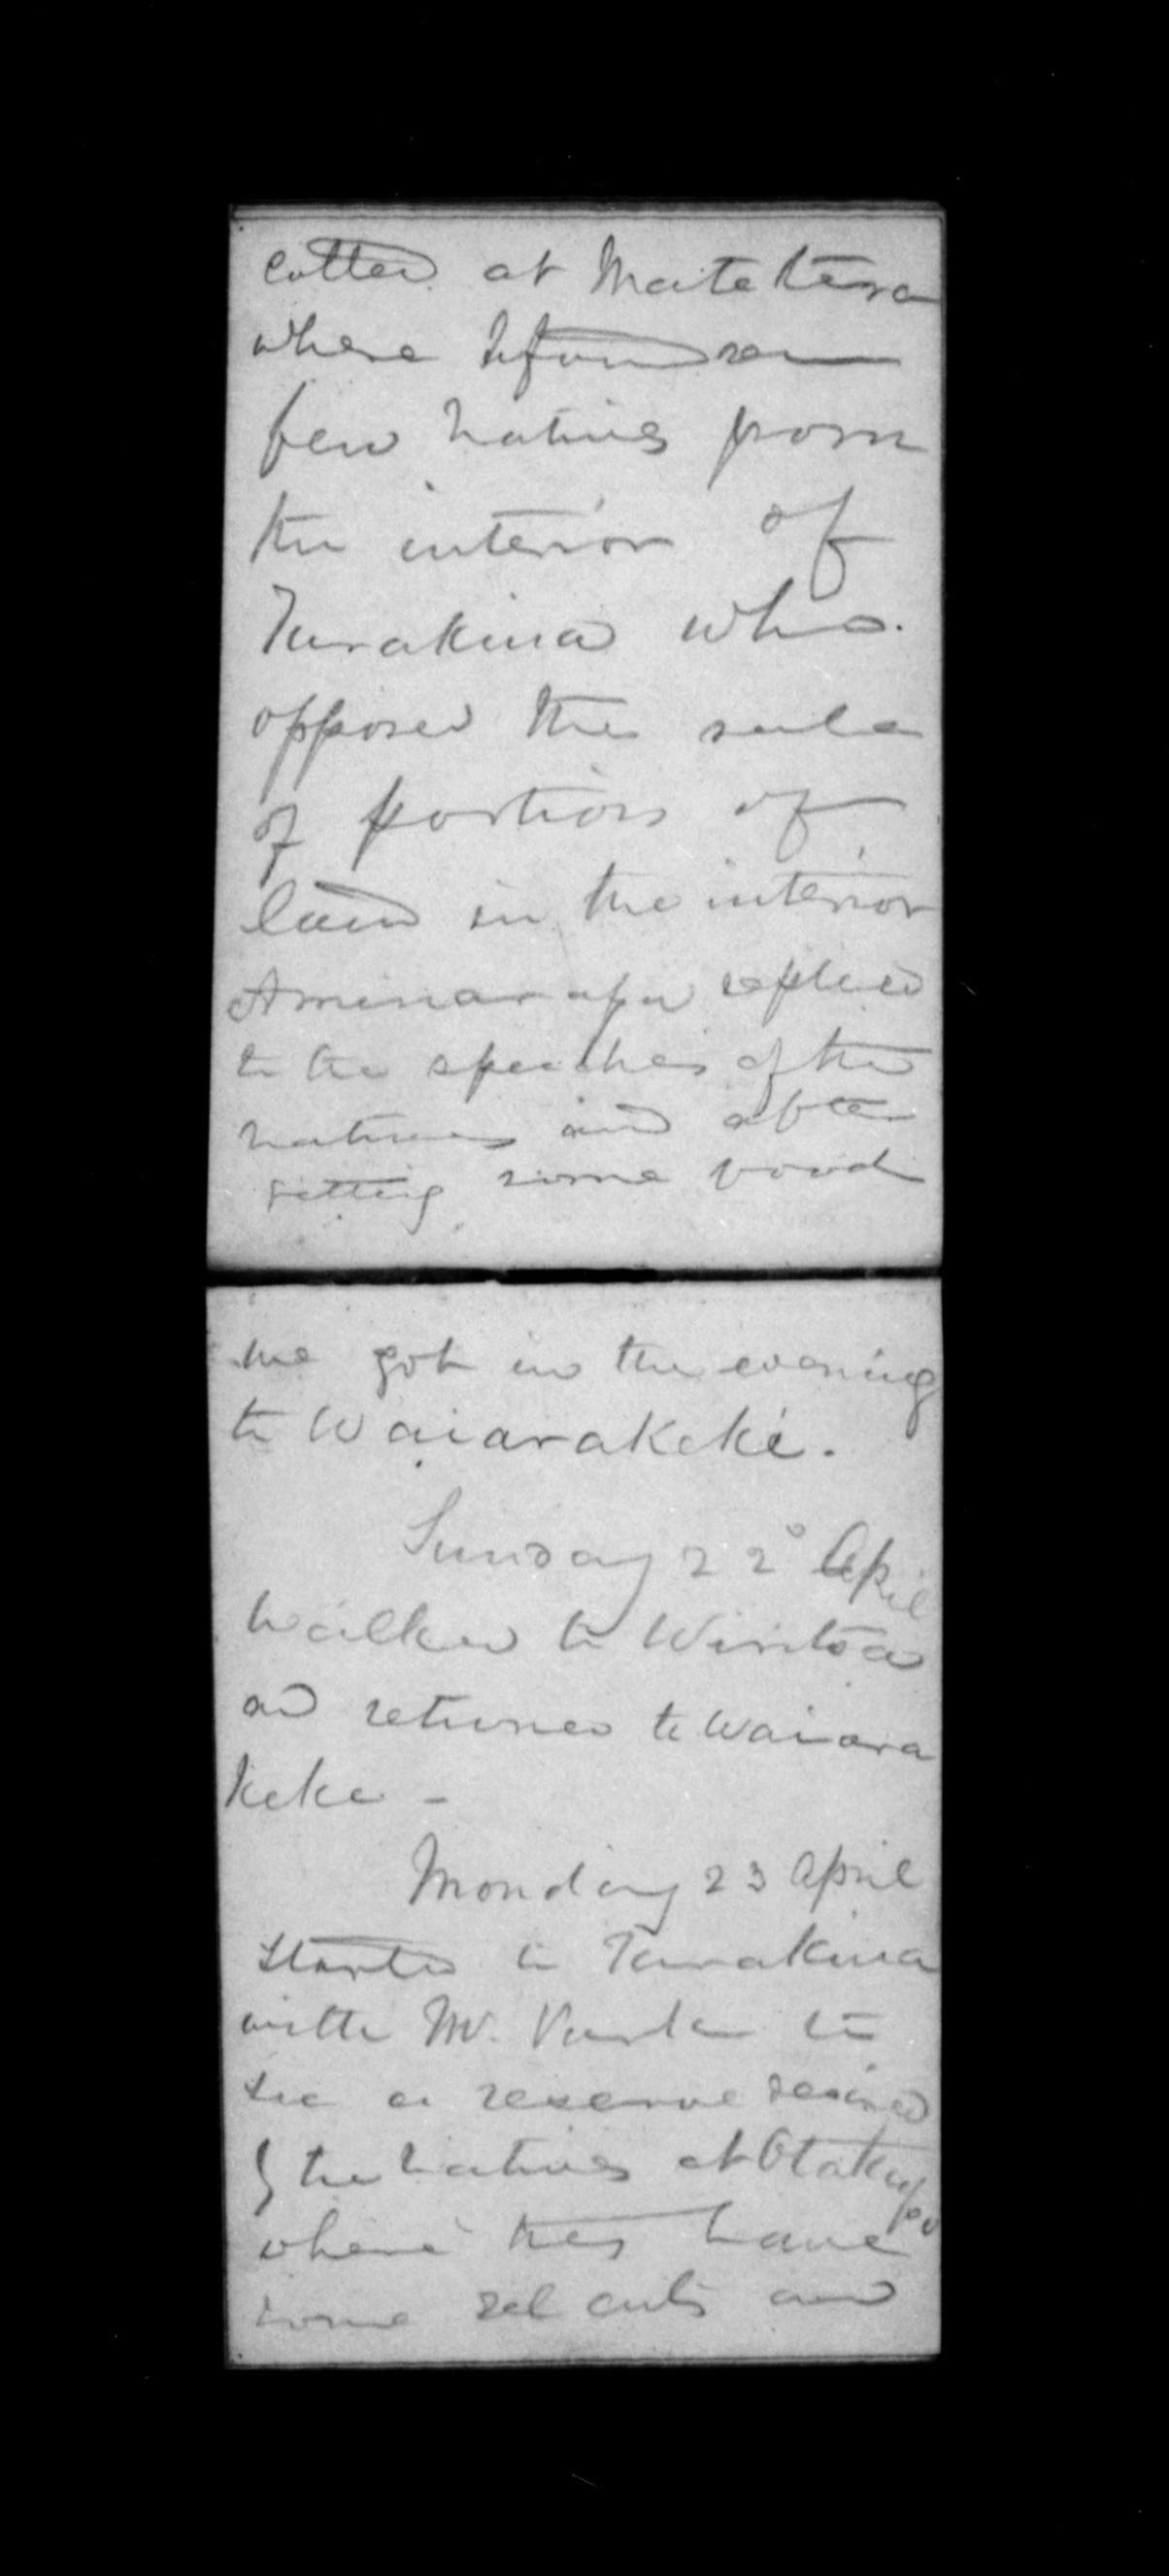 called at Matatera
where I found a
few natives from
the interior of
Turakina who
opposed the sale
of portions of
land in the interior
replied
to the speeches of the
natives and after
getting some food
we got in the evening
to Waiarakeke.
Sunday 22° April
Walked to Wiritoa
and returned to Waiara
keke -
Monday 23 April
Started to Turakina
with Mr. Park to
see a reserve desired
by the natives at Otakapo
where they have
some eel cuts and